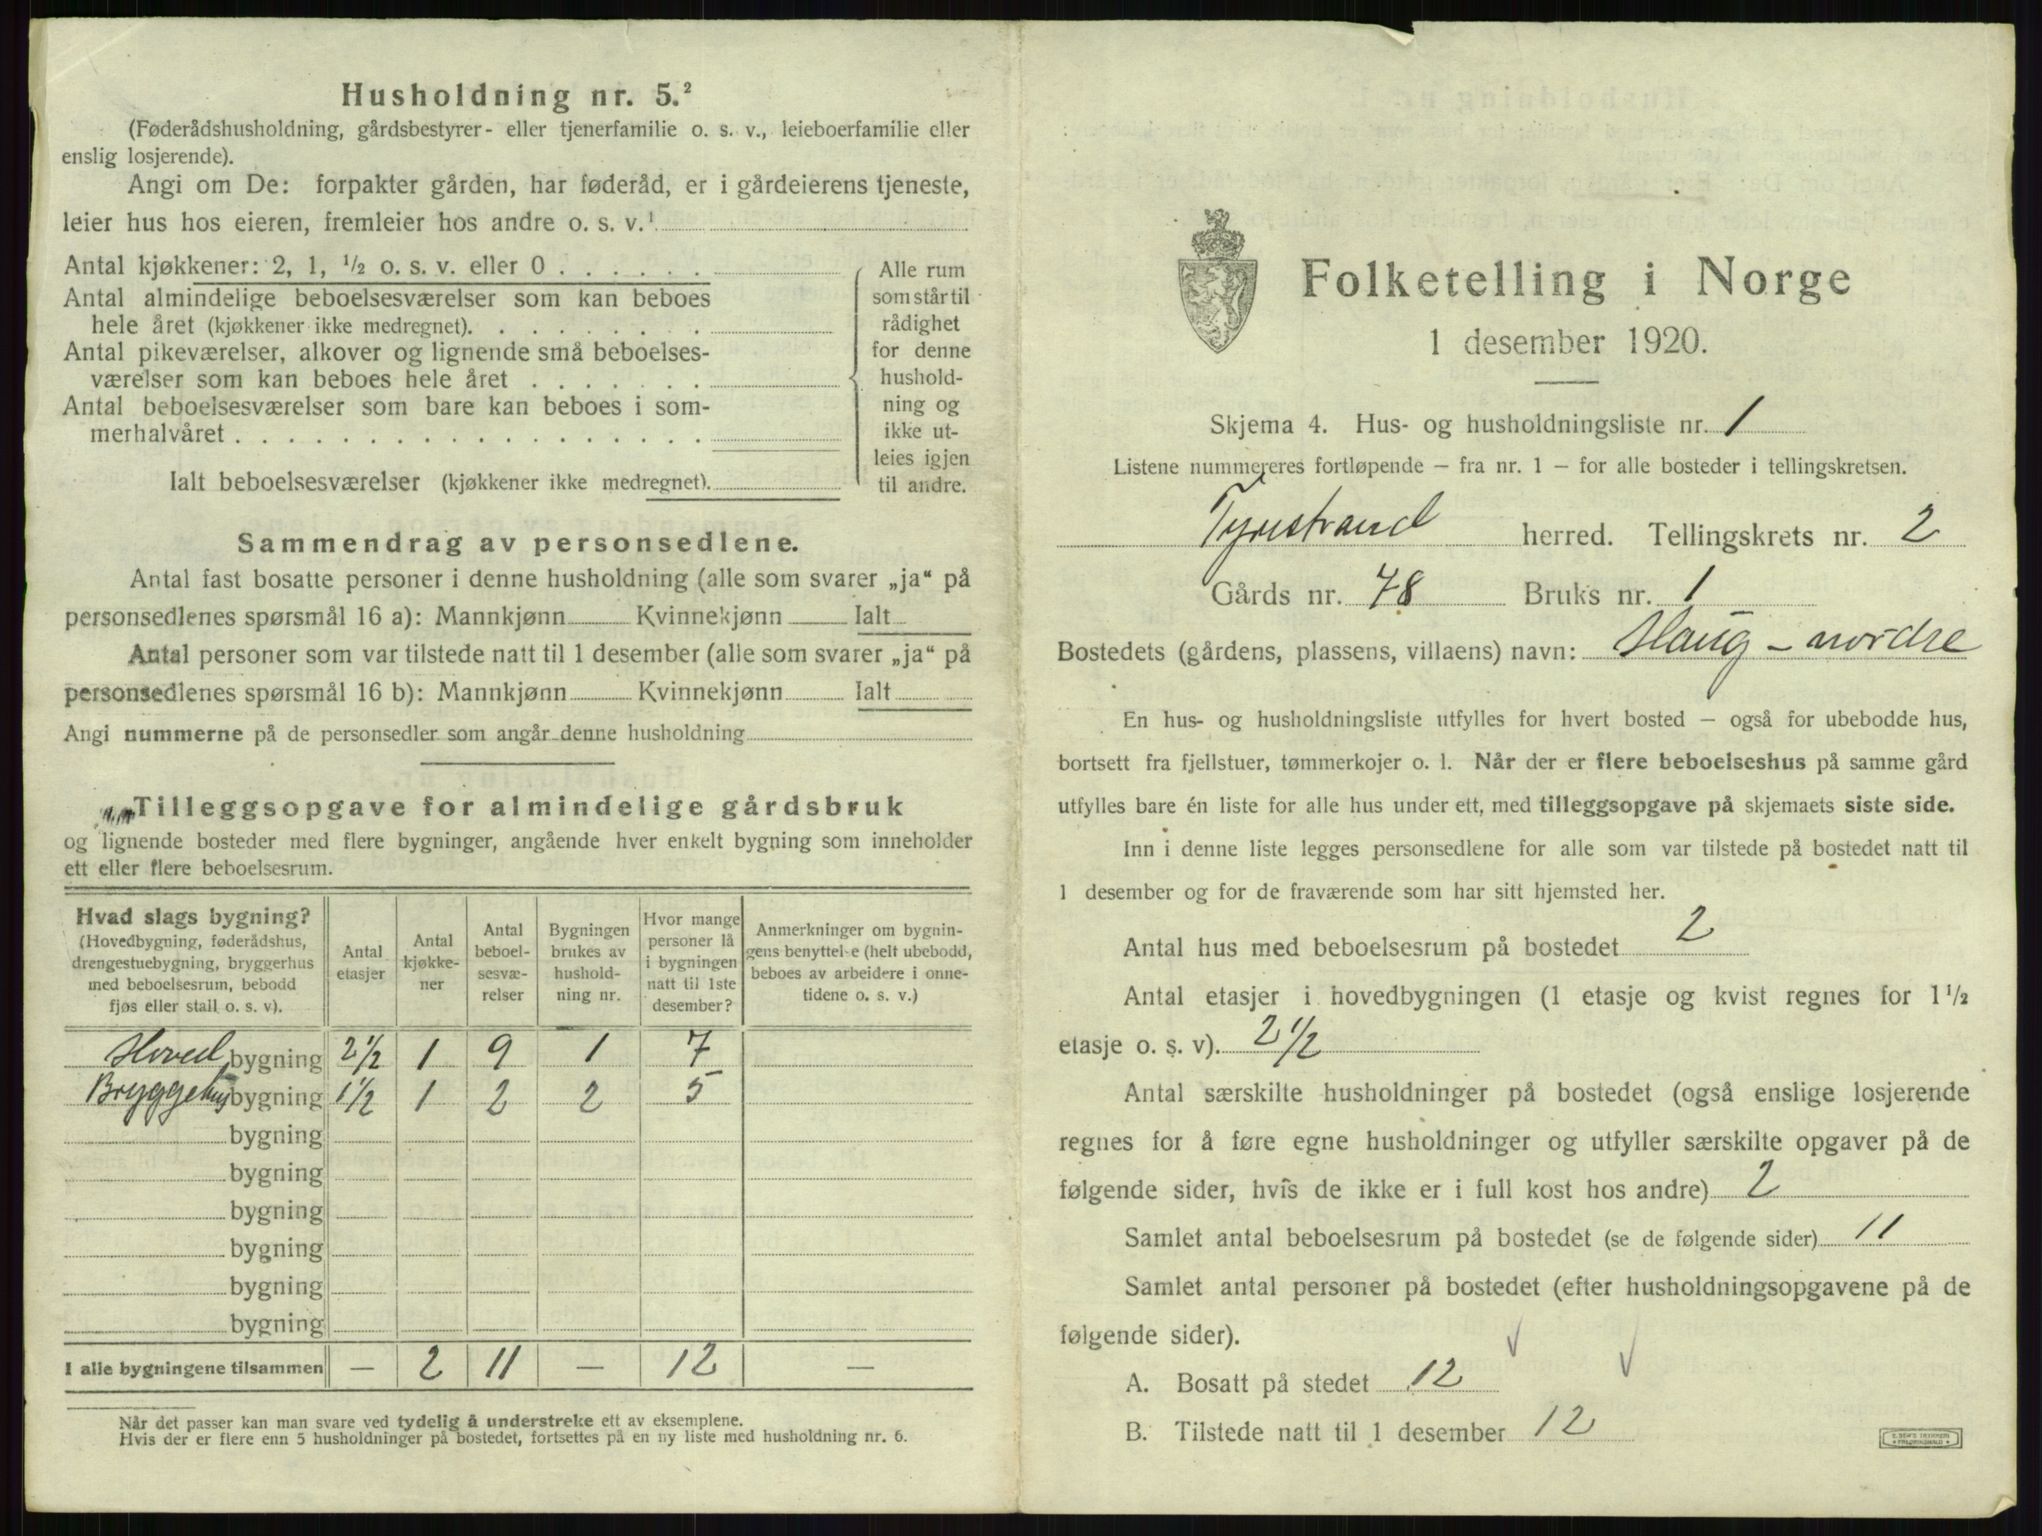 Husholdning nr. 5.²
(Føderådshusholdning, gårdsbestyrer- eller tjenerfamilie o. s. v., leieboerfamilie eller
enslig losjerende).
Angi om De: forpakter gården, har føderåd, er i gårdeierens tjeneste,
leier hus hos eieren, fremleier hos andre o. s. v.¹
Antal kjøkkener: 2, 1, ¹/₂ o. s. v. eller 0 . . . . . .
Antal almindelige beboelsesværelser som kan beboes
hele året (kjøkkener ikke medregnet). . . . . . . . .
Antal pikeværelser, alkover og lignende små beboelses-
værelser som kan beboes hele året . . . . . . .
Antal beboelsesværelser som bare kan beboes i som-
merhalvåret . . . . . . . . . . . . . . . . . .
Ialt beboelsesværelser (kjøkkener ikke medregnet).
Alle rum
som står til
rådighet
for denne
hushold-
ning og
ikke ut-
leies igjen
til andre.
Sammendrag av personsedlene.
Antal fast bosatte personer i denne husholdning (alle som svarer „ja“ på
personsedlenes spørsmål 16 a): Mannkjønn Kvinnekjønn Ialt
Antal personer som var tilstede natt til 1 desember (alle som svarer „ja“ på
personsedlenes spørsmål 16 b): Mannkjønn Kvinnekjønn Ialt
Angi nummerne på de personsedler som angår denne husholdning
Tilleggsopgave for almindelige gårdsbruk
og lignende bosteder med flere bygninger, angående hver enkelt bygning som inneholder
ett eller flere beboelsesrum.
Hvad slags bygning?
(Hovedbygning, føderådshus,
drengestuebygning, bryggerhus
med beboelsesrum, bebodd
fjøs eller stall o. s. v).
Antal
etasjer
Antal
kjøkke-
ner
Antal
beboel-
sesvæ-
relser
Bygningen
brukes av
hushold-
ning nr.
Hvor mange
personer lå
i bygningen
natt til 1ste
desember?
Anmerkninger om bygnin-
gens benyttelse (helt ubebodd,
beboes av arbeidere i onne-
tidene o. s. v.)
Hoved bygning 2 1/2 1 9 1 7
Bryggehus bygning 1 1/2 1 2 2 5
bygning
bygning
bygning
bygning
bygning
bygning
I alle bygningene tilsammen — 2 11 — 12 —
Når det passer kan man svare ved tydelig å understreke ett av eksemplene.
Hvis der er flere enn 5 husholdninger på bostedet, fortsettes på en ny liste med husholdning nr. 6.
Folketelling i Norge
1 desember 1920.
Skjema 4. Hus- og husholdningsliste nr. 1
Listene nummereres fortløpende – fra nr. 1 – for alle bosteder i tellingskretsen.
Tyristrand herred. Tellingskrets nr. 2
Gårds nr. 78 Bruks nr. 1
Bostedets (gårdens, plassens, villaens) navn: Haug - nordre
En hus- og husholdningsliste utfylles for hvert bosted – også for ubebodde hus,
bortsett fra fjellstuer, tømmerkojer o. l. Når der er flere beboelseshus på samme gård
utfylles bare én liste for alle hus under ett, med tilleggsopgave på skjemaets siste side.
Inn i denne liste legges personsedlene for alle som var tilstede på bostedet natt til
1 desember og for de fraværende som har sitt hjemsted her.
Antal hus med beboelsesrum på bostedet 2
Antal etasjer i hovedbygningen (1 etasje og kvist regnes for 1¹/₂
etasje o. s. v). 2 1/2
Antal særskilte husholdninger på bostedet (også enslige losjerende
regnes for å føre egne husholdninger og utfyller særskilte opgaver på de
følgende sider, hvis de ikke er i full kost hos andre) 2
Samlet antal beboelsesrum på bostedet (se de følgende sider) 11
Samlet antal personer på bostedet (efter husholdningsopgavene på de
følgende sider).
A. Bosatt på stedet 12
B. Tilstede natt til 1 desember 12